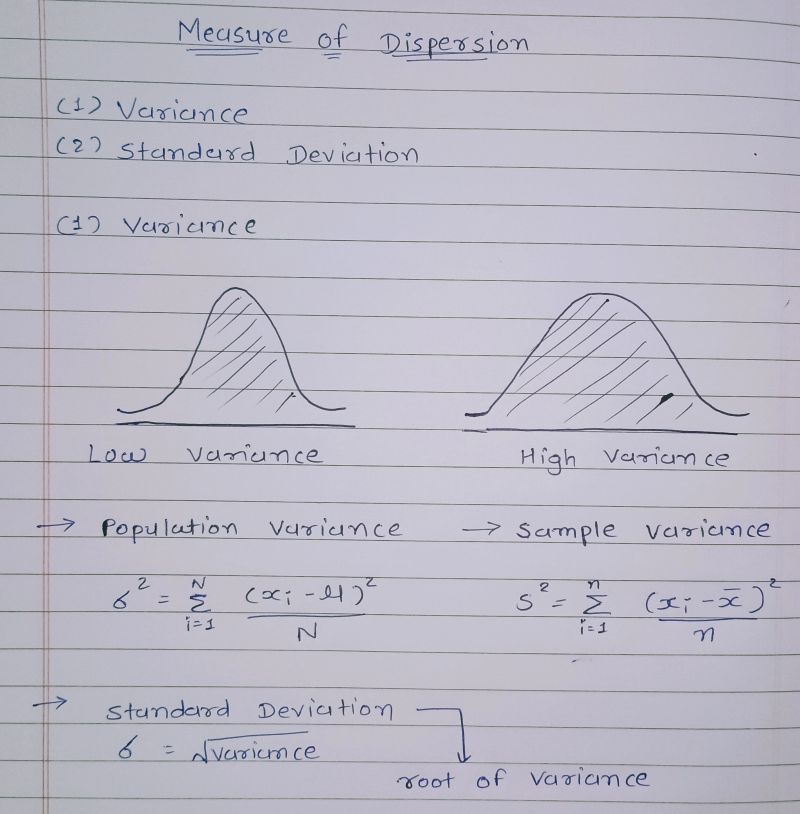 Measure of Dispersion
(1) Variance
(2) Standard Deviation
(1) Variance
Low Variance
High Variance
→ Population Variance
→ Sample Variance
σ² = Σ_{i=1}^{N} (xᵢ - μ)² / N
S² = Σ_{i=1}^{n} (xᵢ - x̄)² / n
→ Standard Deviation
σ = √variance
root of variance